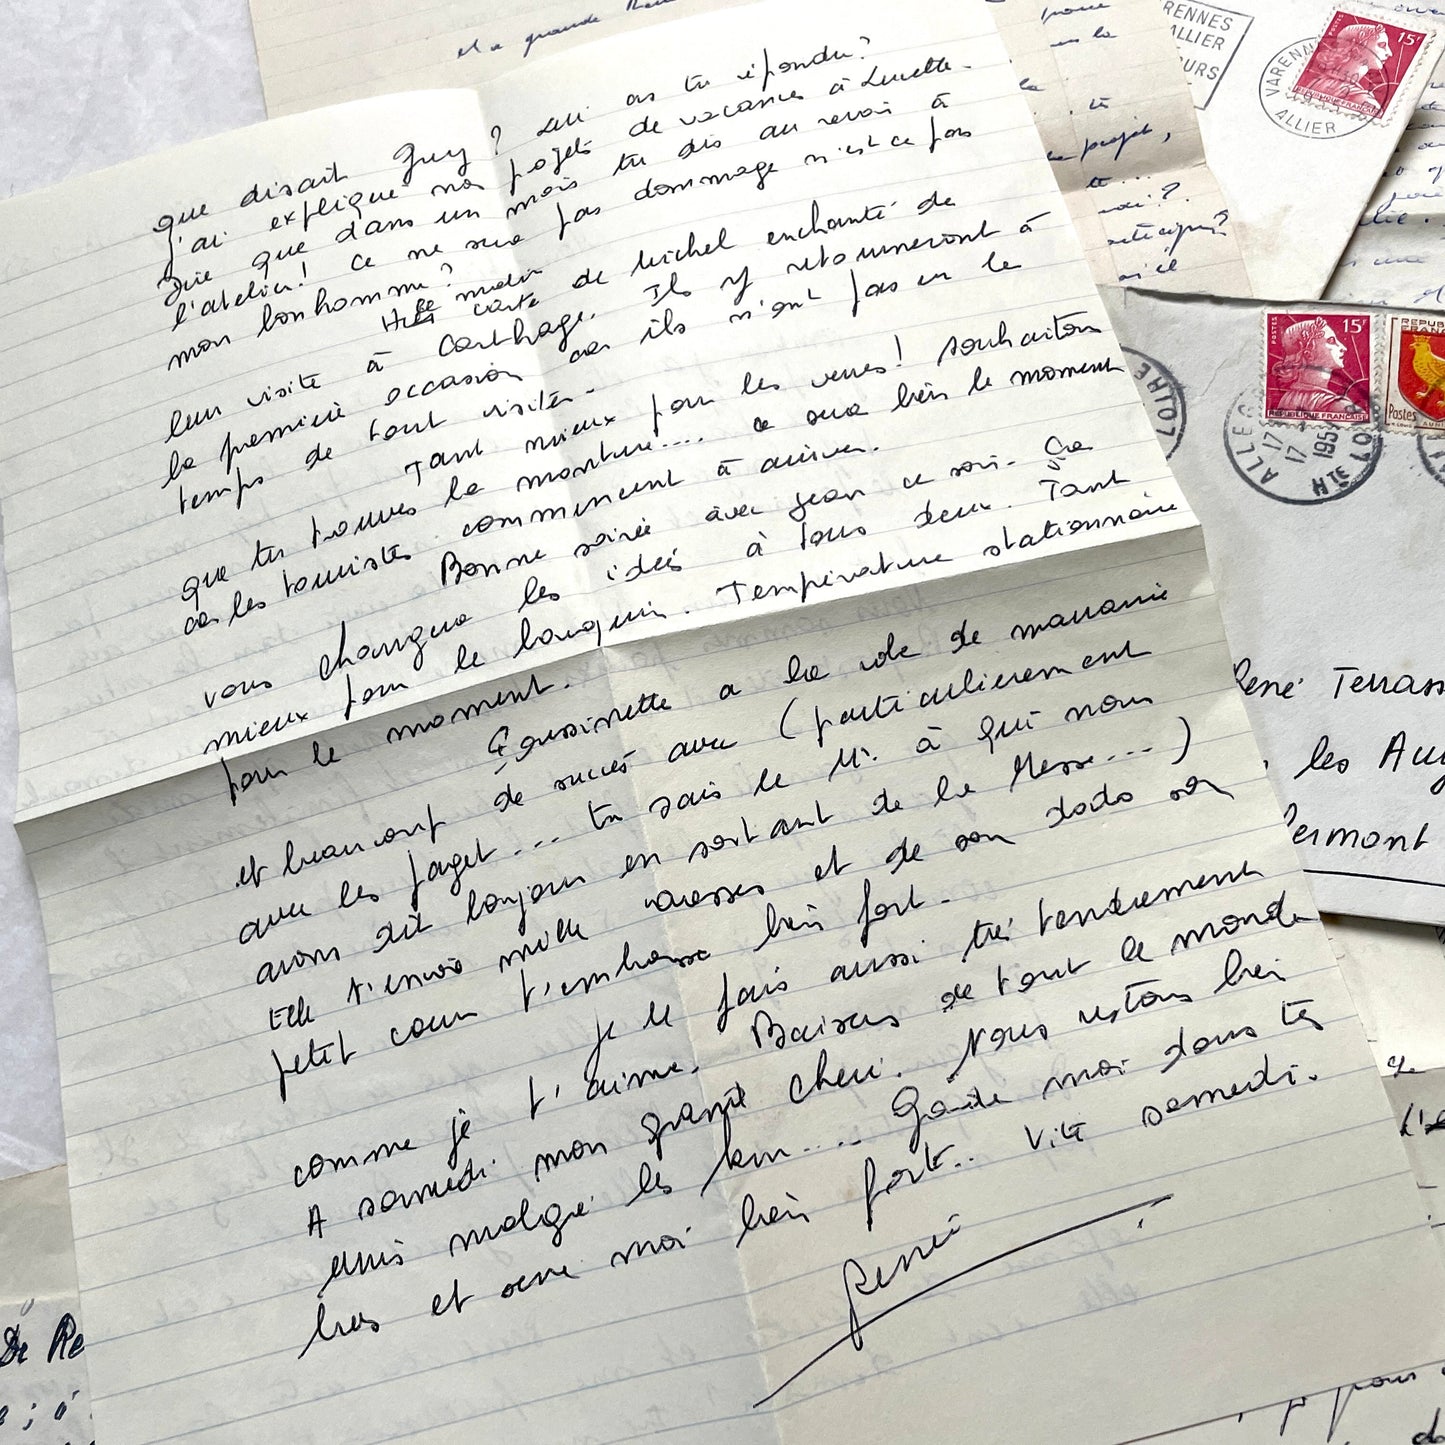 et a grande
que disait Guy ? Lui as tu répondu ?
J'ai expliqué nos projets de vacances à Lucette.
Dire que dans un mois tu dis au revoir à
l'atelier ! Ce ne sera pas dommage n'est ce pas
mon bonhomme ?
ce matin carte de Michel enchanté de
leur visite à Carthage. Ils y retourneront à
la première occasion car ils n'ont pas eu le
temps de tout visiter.
Tant mieux pour les verres ! Souhaitons
que tu trouves la monture.... ce sera bien le moment
car les touristes commencent à arriver.
Bonne soirée avec Jean ce soir. Ça
vous changera les idées à tous deux. Tant
mieux pour le bouquin. Température stationnaire
pour le moment.
Coussinette a la cote de mamie
et beaucoup de succès avec (particulièrement
avec les Paget... tu sais le Mr. à qui nous
avons dit bonjour en sortant de la Messe....)
Elle t'envoie mille caresses et de son dodo son
petit cœur t'embrasse bien fort.
Je le fais aussi très tendrement
comme je t'aime. Baisers de tout le monde
A samedi mon grand chéri. Nous restons bien
unis malgré les km.... Garde moi dans tes
bras et serre moi bien fort.. Vite samedi.
Renée
RENNES
ALLIER
VARENN
ALLIER
POSTES
15F
REPUBLIQUE FRANÇAISE
projet,
15F
REPUBLIQUE FRANÇAISE
Postes
ALLE
17
17
195
LOIRE
René Terras
les Au
ermont
De Re